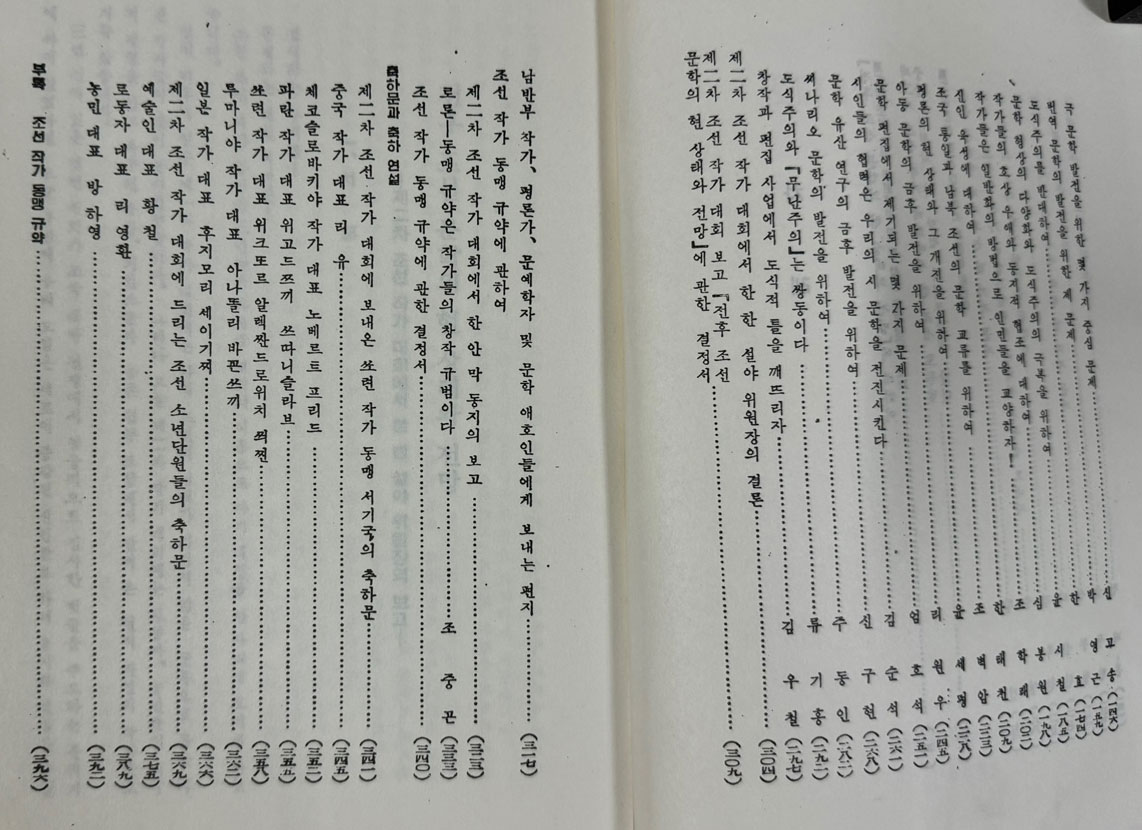 극 문학 발전을 위한 몇 가지 중심 문제……신 고 송 (一四六)
번역 문학의 발전을 위한 제 문제……박 영 근 (一五九)
도식주의를 반대하여……한 효 (一七四)
문학 형상의 다양화와 도식주의의 극복을 위하여……윤 시 철 (一八五)
작가들의 호상 우애와 동지적 협조에 대하여……심 봉 원 (一九八)
작가들은 일반화의 방법으로 인민들을 교양하자!……조 학 래 (二〇二)
신인 육성에 대하여……한 태 천 (二〇九)
조국 통일과 남북 조선의 문학 교류를 위하여……조 벽 암 (二二三)
평론의 현 상태와 그 개진을 위하여……윤 세 평 (二二八)
아동 문학의 금후 발전을 위하여……리 원 우 (二四五)
문학 편집에서 제기되는 몇 가지 문제……엄 호 석 (二五一)
시인들의 협력은 우리의 시 문학을 전진시킨다……김 순 석 (二六一)
문학 유산 연구의 금후 발전을 위하여……신 구 현 (二六八)
씨나리오 문학의 발전을 위하여……주 동 인 (二八二)
도식주의와 『무난주의』는 쌍둥이다……류 기 홍 (二九二)
창작과 편집 사업에서 도식적 틀을 깨뜨리자……김 우 철 (二九七)
제二차 조선 작가 대회에서 한 한 설야 위원장의 결론……(三〇四)
제二차 조선 작가 대회 보고 『전후 조선
문학의 현 상태와 전망』에 관한 결정서……(三〇九)
남반부 작가、평론가、문예학자 및 문학 애호인들에게 보내는 편지……(三一七)
조선 작가 동맹 규약에 관하여
제二차 조선 작가 대회에서 한 안 막 동지의 보고……(三二三)
토론—동맹 규약은 작가들의 창작 규범이다……조 중 곤 (三三三)
조선 작가 동맹 규약에 관한 결정서……(三四〇)
축하문과 축하 연설
제二차 조선 작가 대회에 보내온 쏘련 작가 동맹 서기국의 축하문……(三四一)
중국 작가 대표 리 유……(三四五)
체코슬로바키야 작가 대표 노베르트 프리드……(三五二)
파란 작가 대표 위고드쯔끼 쓰따니슬라브……(三五五)
쏘련 작가 대표 위크또르 알렉싼드로위치 쾨젼……(三五八)
루마니야 작가 대표 아나똘리 바꼰쓰끼……(三六二)
일본 작가 대표 후지모리 세이기찌……(三六六)
제二차 조선 작가 대회에 드리는 조선 소년단원들의 축하문……(三六九)
예술인 대표 황 철……(三七五)
로동자 대표 리 영환……(三八九)
농민 대표 방 하영……(三九二)
부록 조선 작가 동맹 규약……(三九六)